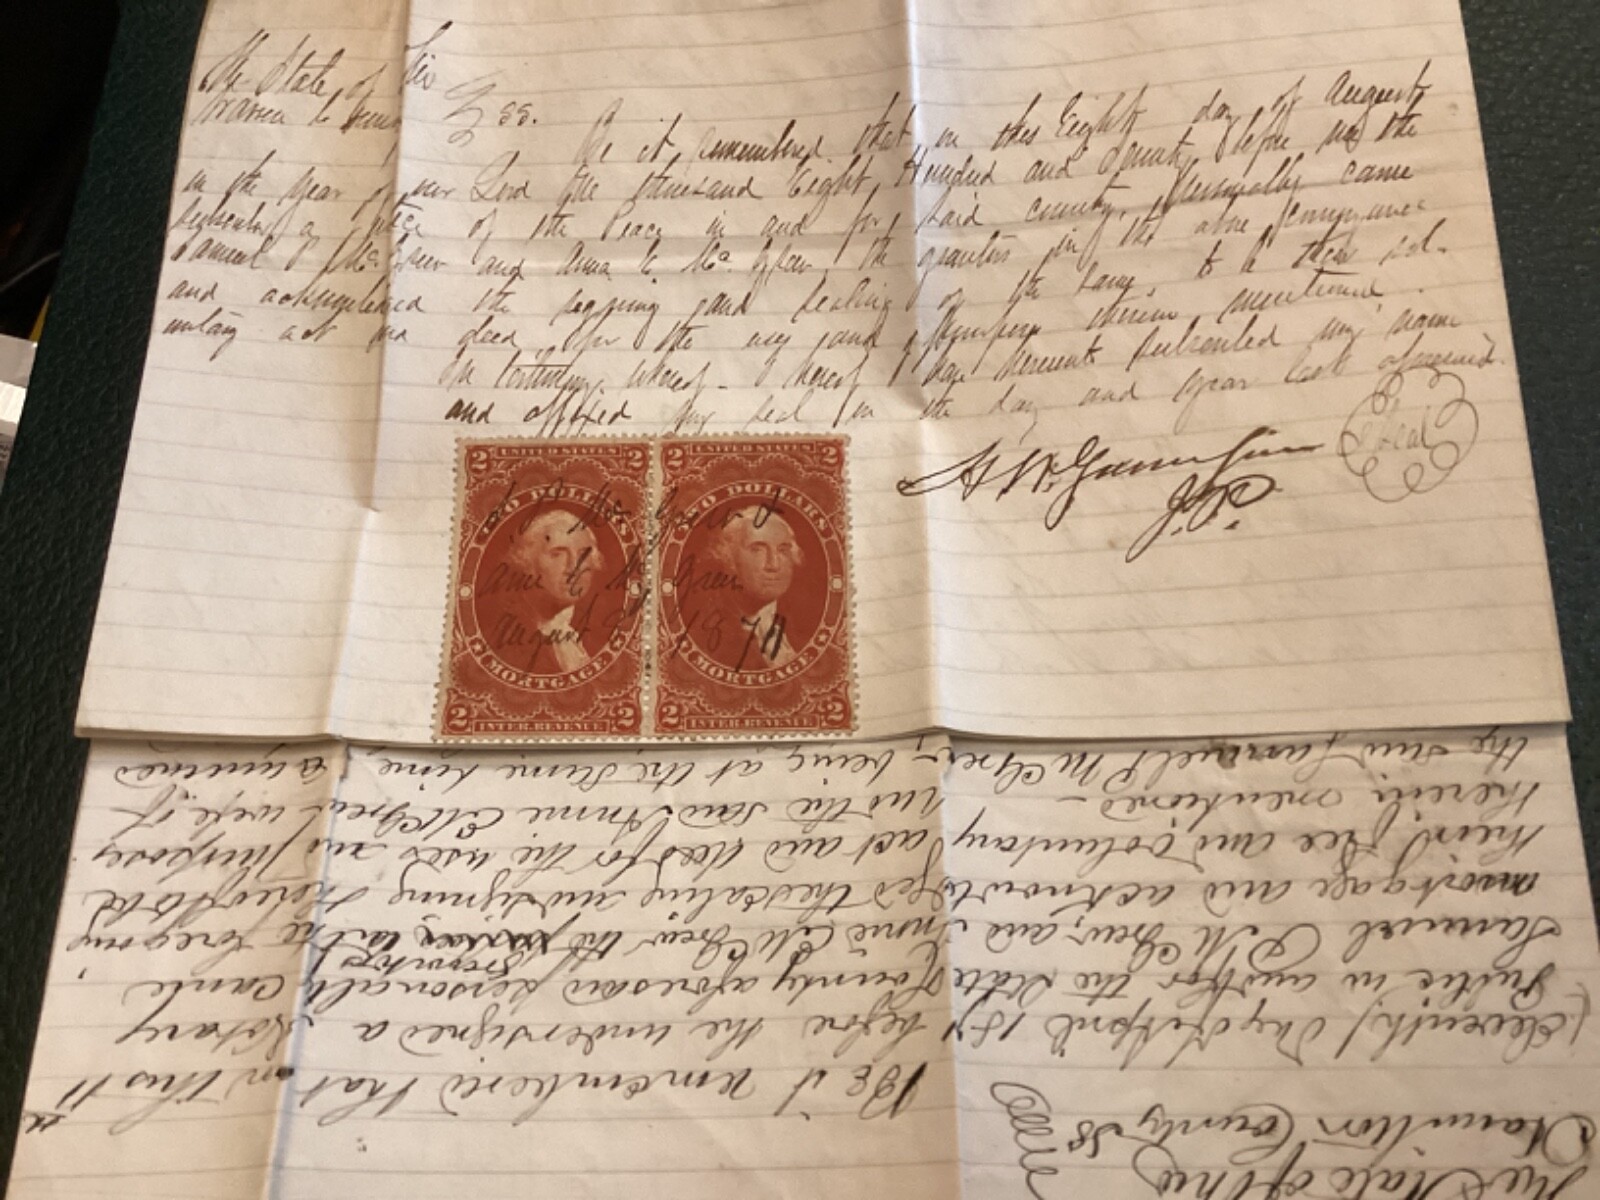 The State of Ohio
Warren County } SS.
Be it remembered, that on this Eighth day of August
in the year of our Lord One thousand Eight Hundred and Seventy before me the
a Justice of the Peace in and for said county, personally came
Samuel P McGrew and Anna E. McGrew the grantors in the above conveyance
and acknowledged the signing and sealing of the same, to be their vol-
untary act and deed, for the uses and purposes therein mentioned.
In testimony whereof - I have hereunto subscribed my name
and affixed my seal on the day and year last aforesaid.
J.P.
Seal
2 UNITED STATES 2
TWO DOLLARS
MORTGAGE
2 INTER. REVENUE 2
2 UNITED STATES 2
TWO DOLLARS
MORTGAGE
2 INTER. REVENUE 2
S. P. McGrew &
Anna E McGrew
August 8th 1870
The State of Ohio
Hamilton County SS
Be it remembered that on this 11th
(Eleventh) day of April 1871 before the undersigned a Notary
Public in and for the State & County aforesaid personally came
Samuel P McGrew, and Anne E McGrew the grantors in the foregoing
mortgage and acknowledged the sealing and signing thereof to be
their free and voluntary act and deed for the uses and purposes
therein mentioned - And the said Anne E McGrew wife of
the said Samuel P McGrew being at the same time examined